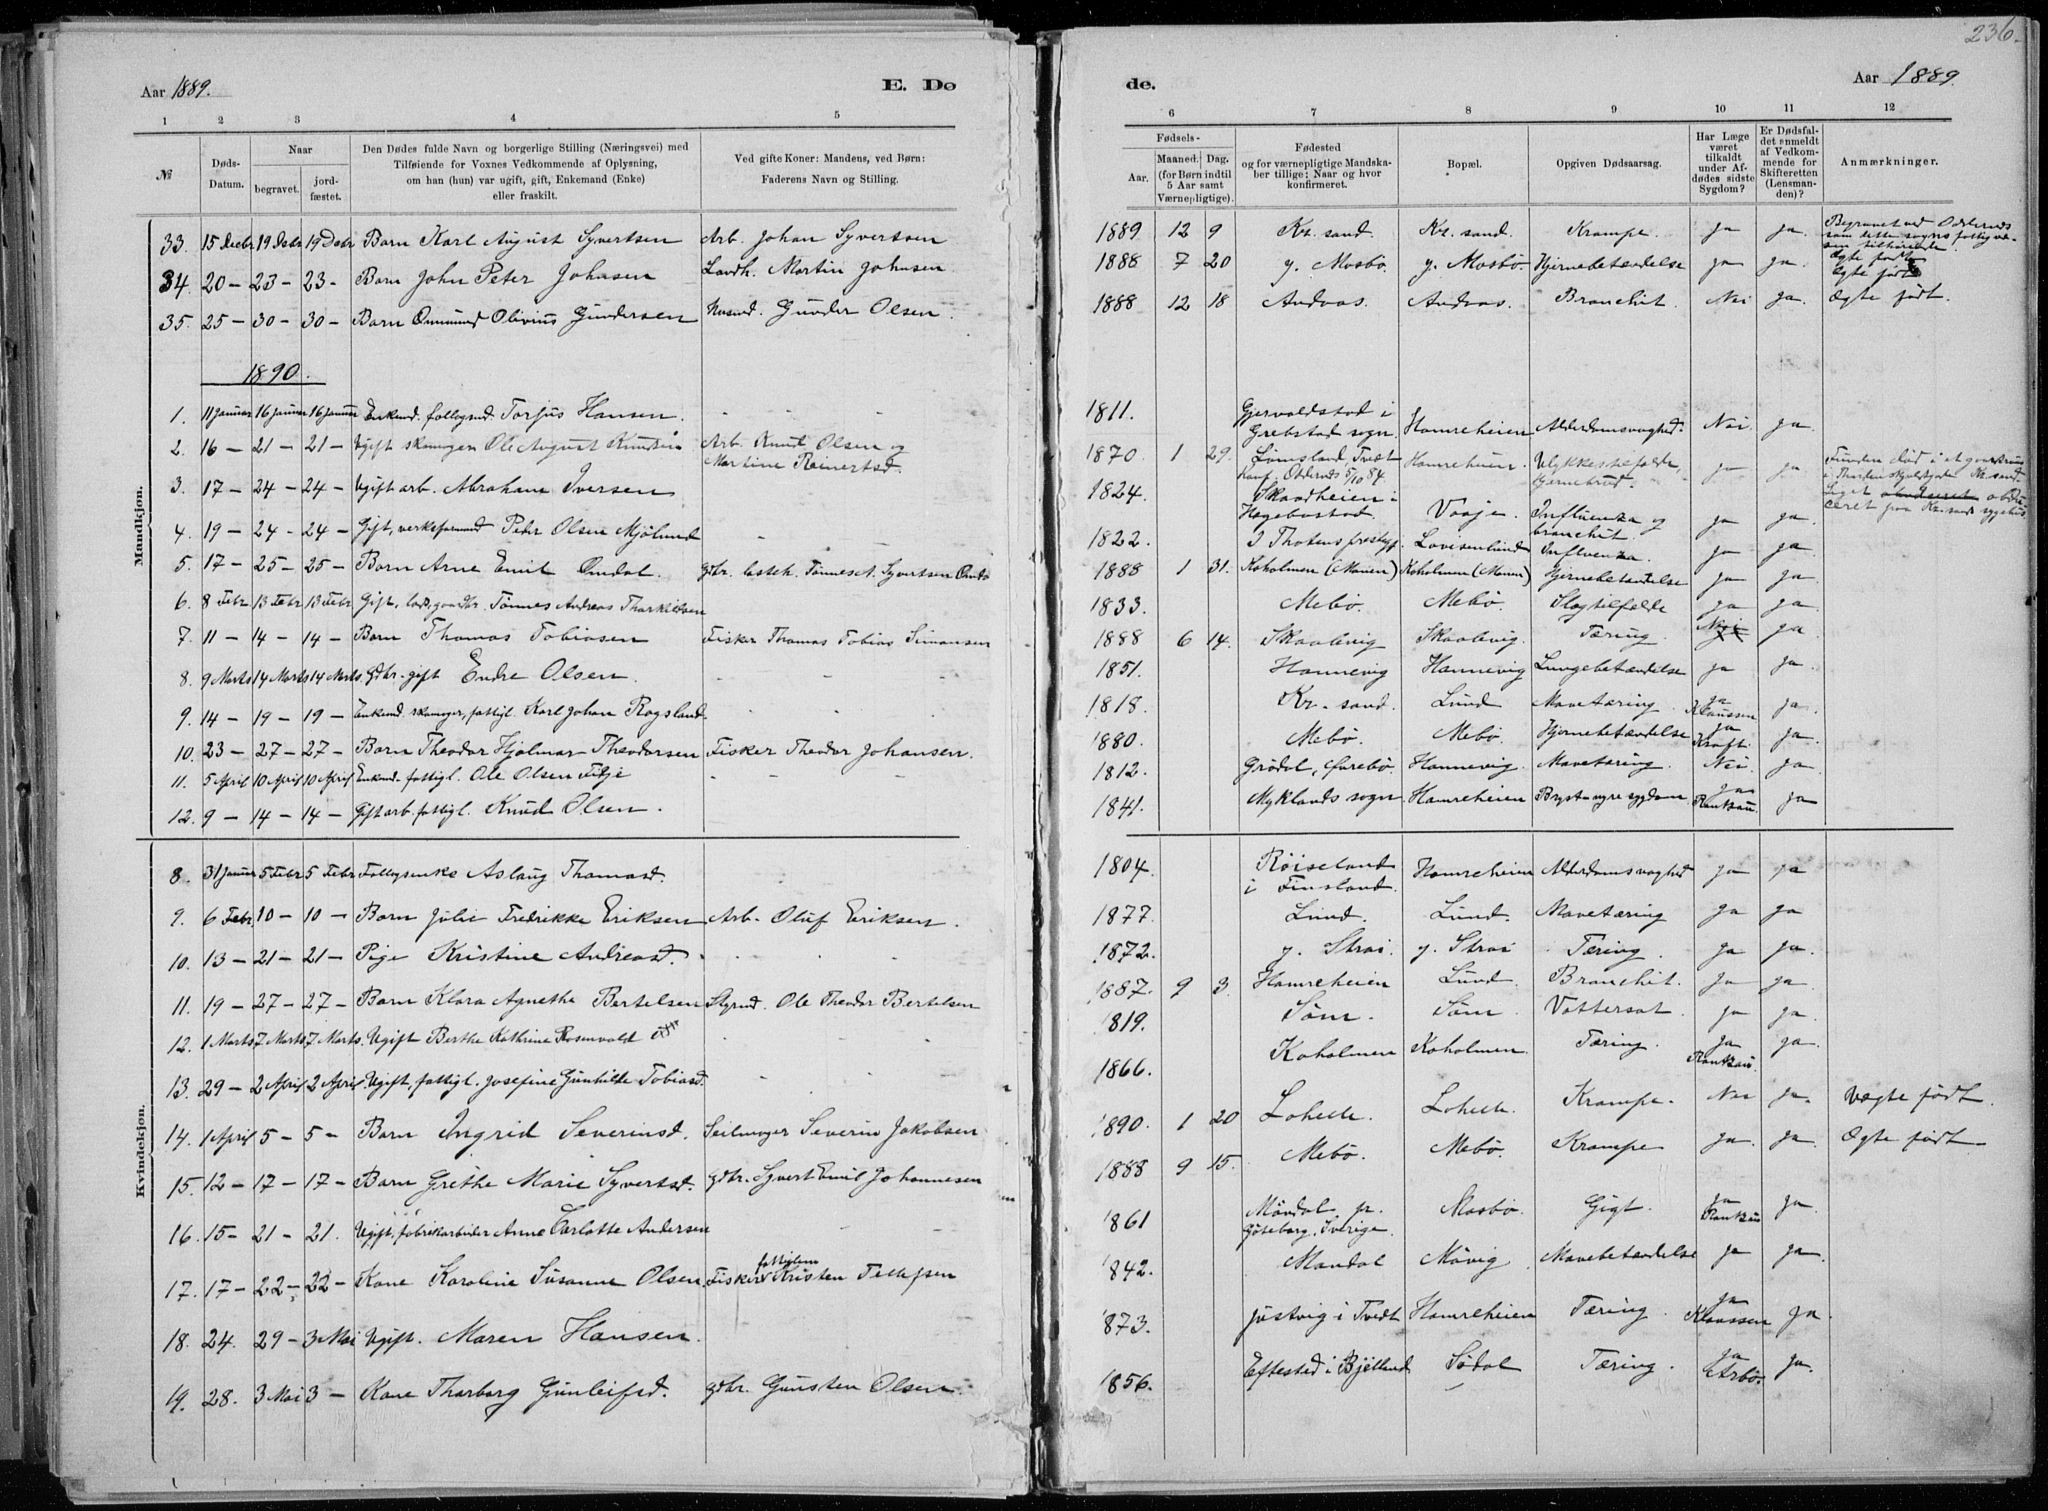 236.
Aar 1889.
E. Dø
de.
Aar 1889.
1 2 3 4 5
6 7 8 9 10 11 12
№
Døds-Datum.
Naar
begravet.
jord-fæstet.
Den Dødes fulde Navn og borgerlige Stilling (Næringsvei) med
Tilføiende for Voxnes Vedkommende af Oplysning,
om han (hun) var ugift, gift, Enkemand (Enke)
eller fraskilt.
Ved gifte Koner: Mandens, ved Børn:
Faderens Navn og Stilling.
Fødsels-
Aar.
Maaned. Dag.
(for Børn indtil
5 Aar samt
Værnepligtige).
Fødested
og for værnepligtige Mandska-
ber tillige: Naar og hvor
konfirmeret.
Bopæl.
Opgiven Dødsaarsag.
Har Læge
været
tilkaldt
under Af-
dødes sidste
Sygdom?
Er Dødsfal-
det anmeldt
af Vedkom-
mende for
Skifteretten
(Lensman-
den)?
Anmærkninger.
Mandkjøn.
33. 15 Decbr 19 Decbr 19 Decbr Barn Karl August Syvertsen Arb. Johan Syvertsen 1889 12 9 Kr. sand. Kr. sand. Krampe. ja ja. Begravet ved Oddernes
som dette sogns fattigvæ-
sen tilhørende.
34. 20 - 23 - 23 - Barn John Peter Johnsen Landh. Martin Johnsen 1888 7 20 y. Mosbø. y. Mosbø. Hjernebetændelse ja ja. Ægte født
35. 25 - 30 - 30 - Barn Ommund Olivius Gundersen Husmd. Gunder Olsen. 1888 12 18 Andaas. Andaas. Bronchit. Nei ja. Ægte født.
1890.
1. 11 Januar 16 Januar 16 Januar Enkemd. follogsmd. Torjus Hansen. 1811. Gjervoldstad i
Grebstad sogn. Hamreheien Alderdomsvaghed. Nei. ja.
2. 16 - 21 - 21 - Ugift skomager Ole August Knudsen Arb. Knud Olsen og
Martine Reinertsd. 1870. 1 29. Lømsland, Tveit
Konf. Oddernes 5/10 84 Hamreheien. Ulykkestilfælde, ja ja. Funden død i et
Kr.sand.
Liget obdu-
ceret paa Kr.sands sygehus
3. 17 - 24 - 24 - Ugift arb. Abraham Iversen 1824. Skaadheien i
Hægebostad. Vaaje. Influenza og
bronchit. ja ja.
4. 19 - 24 - 24 - Gift, verksformand Peter Olsen Mjølnud 1822. I Thotens prestegj. Lovisenlund Influenza. ja ja
5. 17 - 25 - 25 - Barn Arne Emil Omdal. gbr. Tønnes A. Syvertsen Omdal 1888 1 31. Koholmen Koholmen Hjernebetændelse ja ja
6. 8 Febr 13 Febr 13 Febr Gift, gaardbr. Tønnes Andreas Tharkildsen 1833. Mebø. Mebø. Slagtilfælde ja ja
7. 11 - 14 - 14 - Barn Thomas Tobiasen Fisker Thomas Tobias Simonsen 1888 6 14. Skaalevig Skaalevig Tæring Nei ja.
8. 9 Marts 14 Marts 14 Marts. Gdbr. gift Endre Olsen. 1851. Hannevig Hannevig Lungebetændelse ja ja
9. 14 - 19 - 19 - Enkemd. skomager, fattigl. Karl Johan Rogsland. 1818. Kr. sand. Lund Mavetæring. ja
Klaussen ja.
10. 23 - 27 - 27 - Barn Theodor Hjalmar Theodorsen Fisker Theodor Johansen. 1880. Mebø. Mebø. Hjernebetændelse ja
Kraft ja.
11. 5 April 10 April 10 April Enkemd. fattigl. Ole Olsen Fidje 1812. Grødal, Øvrebø. Hannevig. Mavetæring. Nei. ja.
12. 9 - 14 - 14 - Gift arb. fattigl. Knud Olsen. 1841. Myklands sogn Hamreheien Bryst-nyresygdom ja
Rantzau ja
Kvindekjøn.
8. 31 Januar 5 Febr 5 Febr Follogsenke Aslaug Thomasd. 1804. Røiseland
i Finsland. Hamreheien Alderdomsvaghed ja ja
9. 6 Febr. 10 - 10 - Barn Julie Fredrikke Eriksen Arb. Oluf Eriksen. 1877. Lund. Lund. Mavetæring ja ja
10. 13 - 21 - 21 - Pige Kristine Andreasd. 1872. y. Strai. y. Strai Tæring. ja ja.
11. 19 - 27 - 27 - Barn Klara Agnethe Bertelsen Styrmd. Ole Theodor Bertelsen 1887. 9 3. Hamreheien Lund. Bronchit. ja ja.
12. 1 Marts 7 Marts 7 Marts. Ugift Berthe Kathrine Rosenvold 1819. Søm. Søm. Vattersot. ja ja.
13. 29 - 2 April 2 April. Ugift, fattigl. Josefine Gunhilde Tobiasd. 1866. Koholmen Koholmen. Tæring. ja
Rantzau. ja.
14. 1 April 5 - 5 - Barn Ingrid Severinsd. Seilmager Severin Jakobsen 1890. 1 20 Lohelle. Lohelle. Krampe. Nei ja. Uægte født.
15. 12 - 17 - 17 - Barn Grethe Marie Syvertsd. gdbr. Syvert Emil Johannesen 1888 9 15. Mebø. Mebø. Krampe ja. ja. Ægte født.
16. 15 - 21 - 21. Ugift, fabrikarbeider Anne Carlotte Andersen 1861 Møndal pr.
Gøteborg, Sverige. Mosbø. Gigt. ja
Rantzau ja.
17. 17 - 22 - 22 - Kone Karoline Susanne Olsen. Fisker fattiglem Kristen Tellefsen 1842. Mandal Måvig Mavebetændelse ja ja.
18. 24. 29 - 3 Mai Ugift. Maren Hansen. 1873. Justvig i Tvedt Hamreheien Tæring. ja
Klaussen ja.
19. 28. 3 Mai 3 - Kone Tharborg Gunleifsd. gdbr. Gunsten Olsen. 1856. Eftestad i Bjelland Sødal Tæring. ja
Arbo. ja.